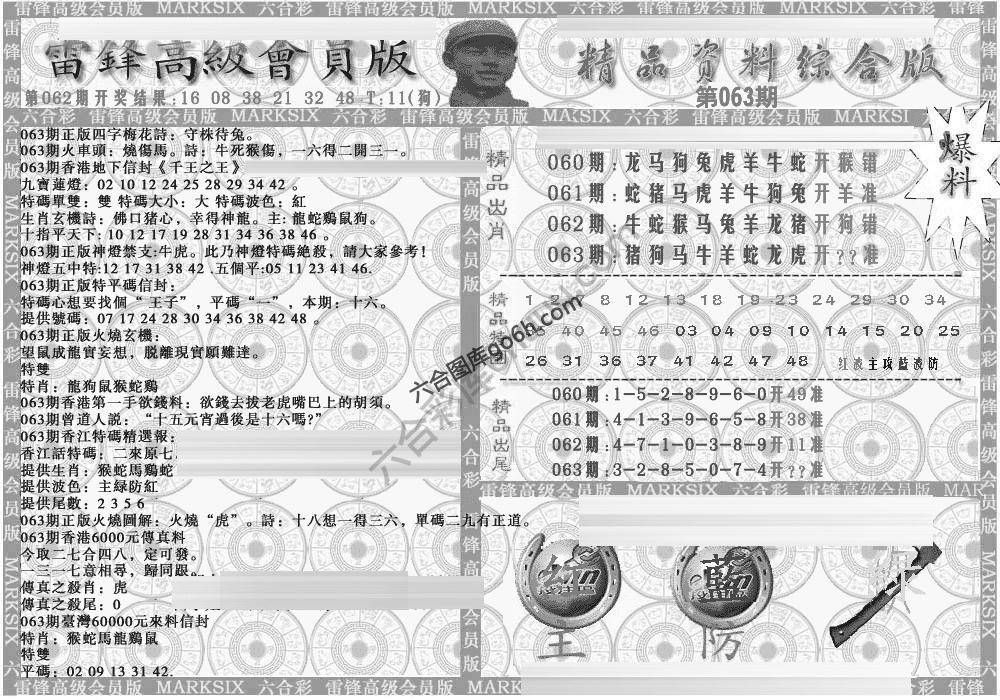 雷锋高级会员版 MARKSIX 六合彩 雷锋高级会员版 MARKSIX 六合彩 雷锋高级会员版 MARKSIX 六合彩 雷锋
雷鋒高級會員版
第062期开奖结果:16 08 38 21 32 48-T:11(狗)
精品资料综合版
第063期
爆料
063期正版四字梅花詩：守株待兔。
063期火車頭：燒傷馬。詩：牛死猴傷，一六得二開三一。
063期香港地下信封《千王之王》
九寶蓮燈：02 10 12 24 25 28 29 34 42 。
特碼單雙：雙 特碼大小：大 特碼波色：紅
生肖玄機詩：佛口猪心，幸得神龍。主:龍蛇鷄鼠狗。
十指平天下:10 12 17 19 28 31 34 36 38 46 。
063期正版神燈禁支:牛虎。此乃神燈特碼絶殺，請大家參考!
神燈五中特:12 17 31 38 42 .五個平:05 11 23 41 46.
063期正版特平碼信封：
特碼心想要找個“王子”，平碼“一”，本期：十六。
提供號碼：07 17 24 28 30 34 36 38 42 48 。
063期正版火燒玄機：
望鼠成龍實妄想，脱離現實願難達。
特雙
特肖：龍狗鼠猴蛇鷄
063期香港第一手欲錢料：欲錢去拔老虎嘴巴上的胡須。
063期曾道人説：“十五元宵過後是十六嗎?”
063期香江特碼精選報：
香江話特碼：二來原七.
提供生肖：猴蛇馬鷄蛇
提供波色：主緑防紅
提供尾數：2 3 5 6
063期正版火燒圖解：火燒“虎”。詩：十八想一得三六，單碼二九有正道。
063期香港6000元傳真料
今取二七合四八，定可發。
一三一七意相尋，歸同跟。
傳真之殺肖：虎
傳真之殺尾：0
063期臺灣60000元來料信封
特肖：猴蛇馬龍鷄鼠
特雙
平碼：02 09 13 31 42.
雷锋高级会员版 MARKSIX 六合彩 雷锋高级会员版
精品出肖
060期:龙马狗兔虎羊牛蛇开猴错
061期:蛇猪马虎羊牛狗兔开羊准
062期:牛蛇猴马兔羊龙猪开狗错
063期:猪狗马牛羊蛇龙虎开??准
精品特
1 2 8 12 13 18 19 23 24 29 30 34
40 45 46 03 04 09 10 14 15 20 25
26 31 36 37 41 42 47 48 红波主攻蓝波防
精品出尾
060期:1-5-2-8-9-6-0开49准
061期:4-1-3-9-6-5-8开38准
062期:4-7-1-0-3-8-9开11准
063期:3-2-8-5-0-7-4开??准
雷锋高级会员版 MARKSIX 六合彩 雷锋高级会员版 MAR
六合图库906h.com
主
藍
防